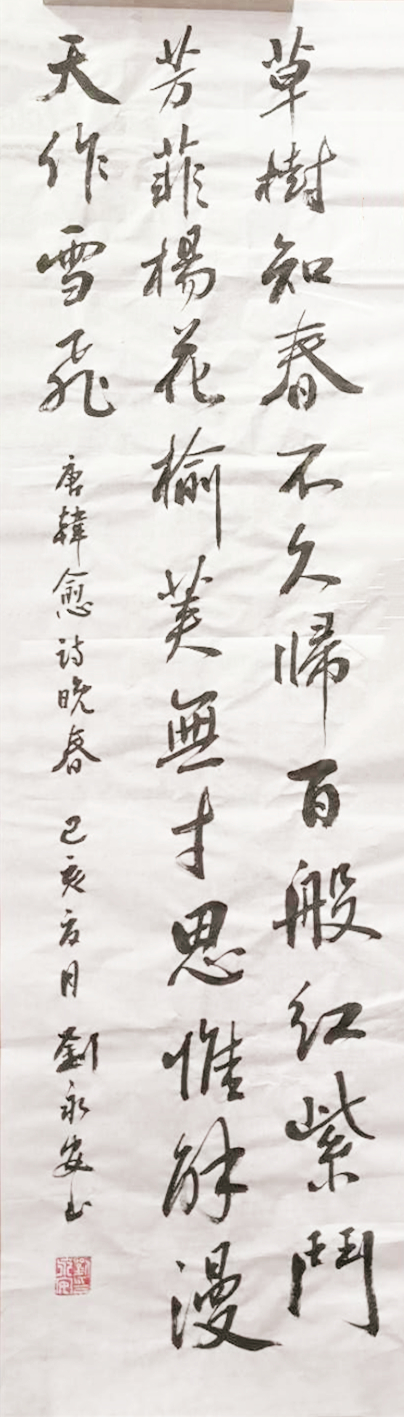 草樹知春不久歸百般紅紫鬥
芳菲楊花榆莢無才思惟解漫
天作雪飛
唐韓愈詩晚春 己亥六月 劉永安书